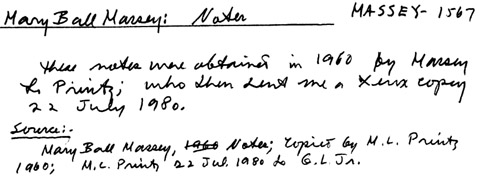 Mary Ball Massey: Notes MASSEY-1567
These notes were obtained in 1960 by Massey
to Printz; who then sent me a Xerox copy
22 July 1980.
Source:-
Mary Ball Massey, 1960 Notes; Copied by M.L. Printz
1960; M.L. Printz 22 Jul. 1980 to G.L. Jr.